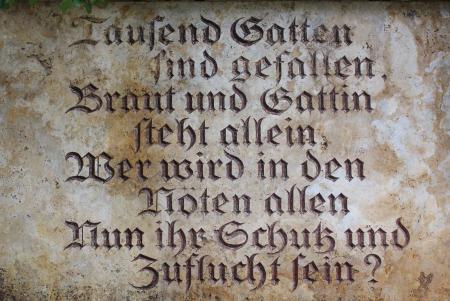 Tausend Gatten
sind gefallen,
Braut und Gattin
steht allein.
Wer wird in den
Nöten allen
Nun ihr Schutz und
Zuflucht sein?